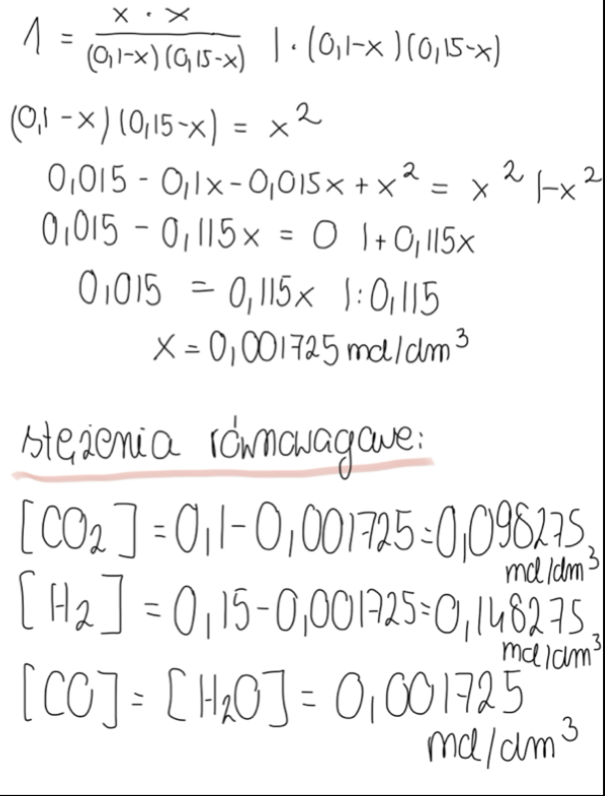 1 = x · x / (0,1-x)(0,15-x) | · (0,1-x)(0,15-x)
(0,1-x)(0,15-x) = x²
0,015 - 0,1x - 0,015x + x² = x² |-x²
0,015 - 0,115x = 0 |+0,115x
0,015 = 0,115x |:0,115
x = 0,001725 mol/dm³
stężenia równowagowe:
[CO₂] = 0,1-0,001725=0,098275
mol/dm³
[H₂] = 0,15-0,001725=0,148275
mol/dm³
[CO] = [H₂O] = 0,001725
mol/dm³